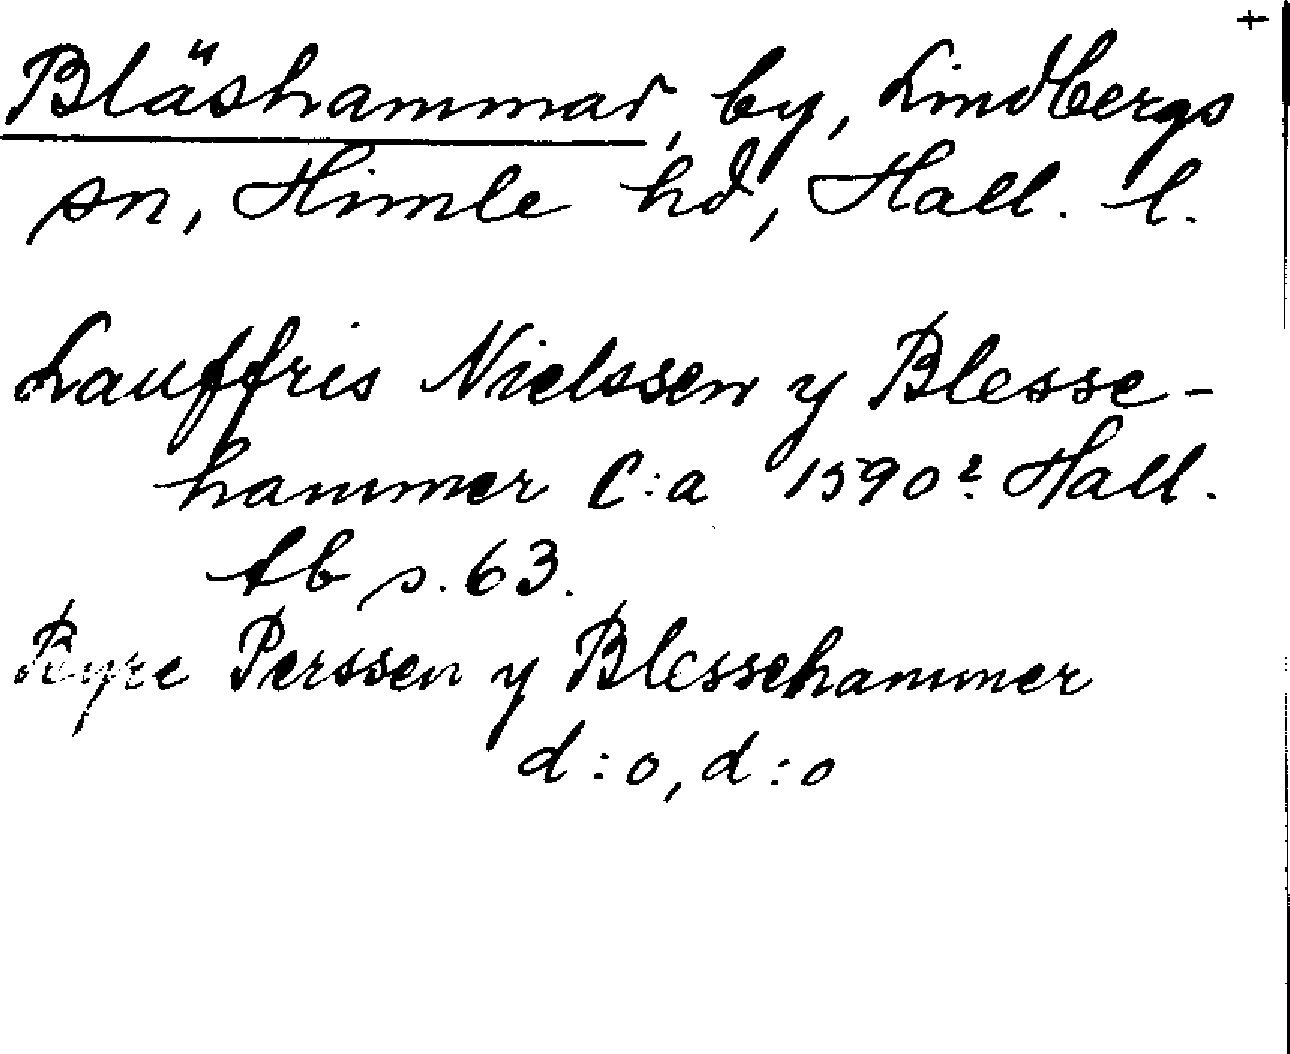 +
Bläshammar, by, Lindbergs
sn, Himle hd, Hall. l.
Lauffris Nielssen y Blesse-
hammer C:a 1590? Hall.
tb s. 63.
Perssen y Blessehammer
d:o, d:o